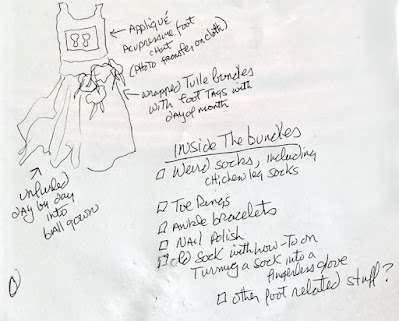 Appliqué
Acupressure foot
chart
(Photo transfer on cloth)
wrapped Tulle bundles
with foot Tags with
day of month
unfurled
day by day
into
ball gown
Inside The bundles
Weird socks, including
chicken leg socks
Toe Rings
Ankle bracelets
Nail Polish
old sock with how-To on
Turning a sock into a
fingerless glove
other foot related stuff?